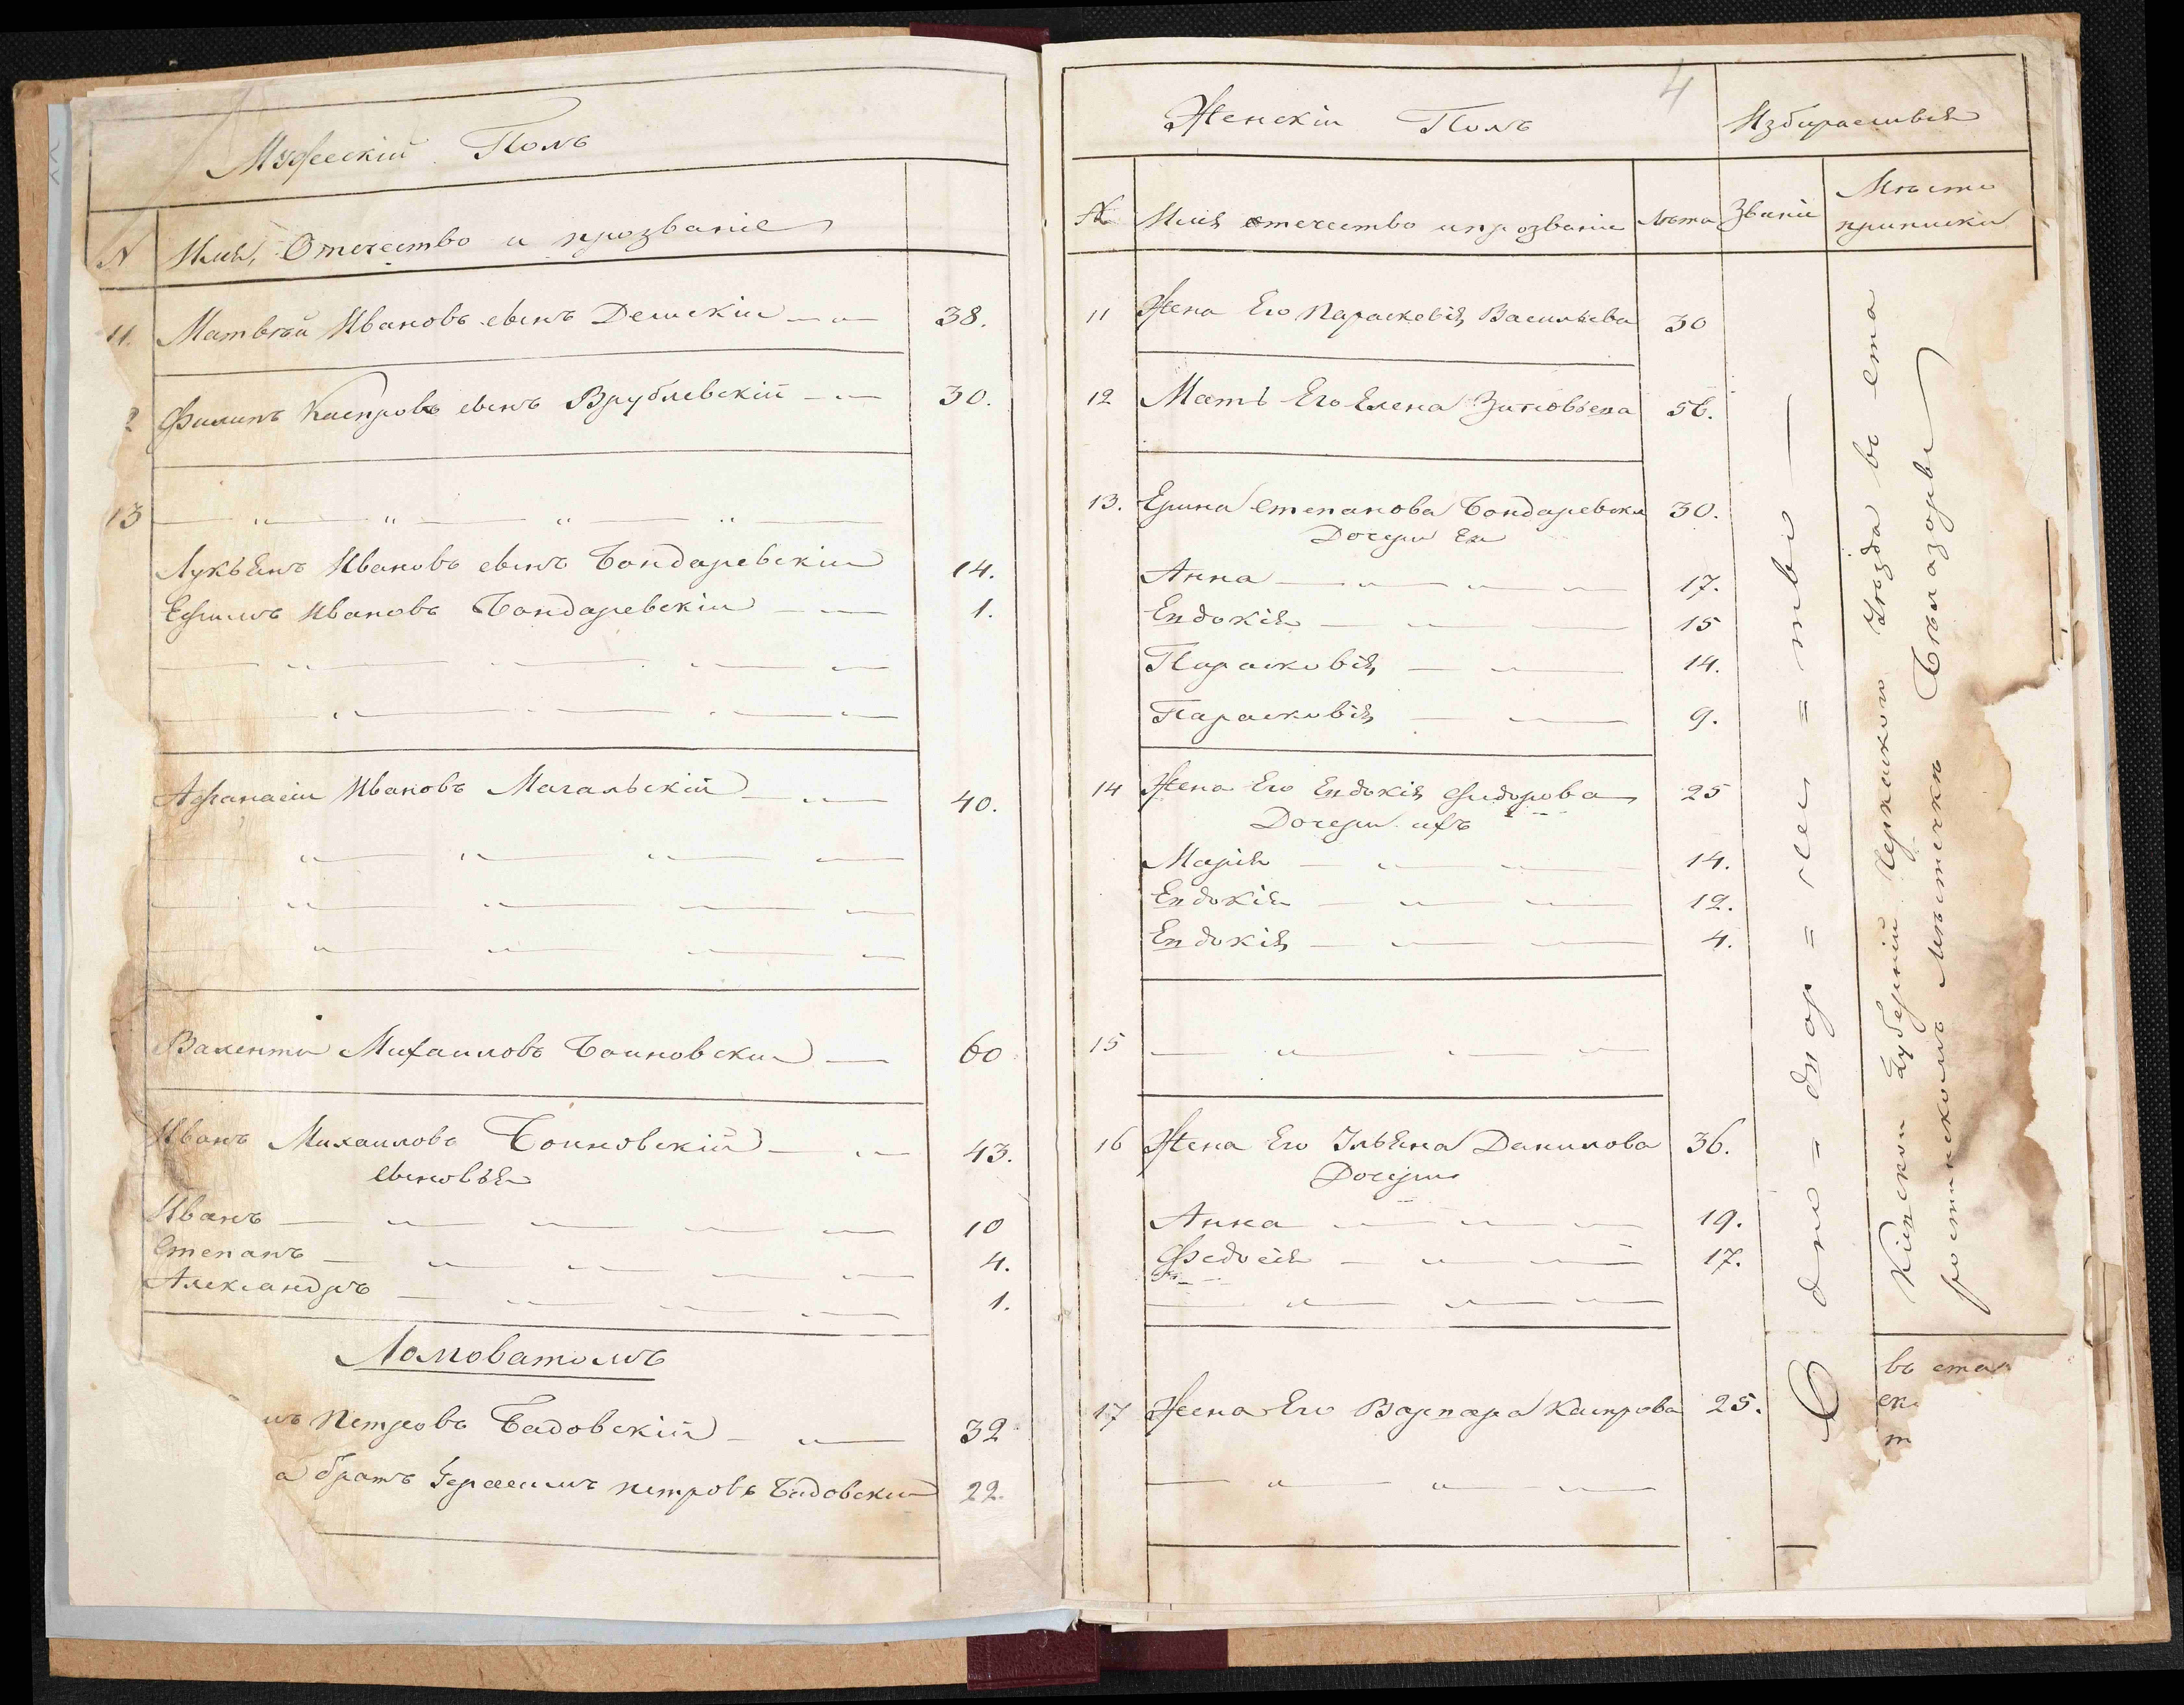 Мужескій Полъ
N Имя, Отечество и прозваніе
11. Матвѣй Ивановъ сынъ Демскій 38.
2 Филипъ Каспровъ сынъ Врублевскій 30.
13
Лукъянъ Ивановъ сынъ Бондаревскій 14.
Ефимъ Ивановъ Бондаревскій 1.
Афанасій Ивановъ Магальскій 40.
Валентій Михаиловъ Боиновскій 60
Иванъ Михаиловъ Боиновскій 43.
сыновъя
Иванъ 10
Степанъ 4.
Александръ 1.
Ломоватомъ
нъ Петровъ Бадовскій 32
а братъ Герасимъ петровъ Бадовскій 22.
4
Женскій Полъ Избираемыя
№ Имя отечество и прозваніе Лѣта Званіе Мѣсто приписки
11 Жена Его Параскевія Васильева 30
12 Мать Его Елена Зиновьева 56.
13. Ерина Степанова Бондаревска 30.
Дочери Ея
Анна 17.
Евдокія 15
Парасковія 14.
Парасковія 9.
14 Жена Его Евдокія Фидорова 25
Дочери ихъ
Марія 14.
Евдокія 12.
Евдокія 4.
15
16 Жена Его Ульяна Данилова 36.
Дочери
Анна 19.
Федосія 17.
17 Жена Его Варвара Каспрова 25.
О дно = двор = чес = тво
Кіевской Губерніи Черкаского Уѣзда въ ста
ростинскомъ Мѣстечкѣ Бѣлазорье
въ стар
ск
т